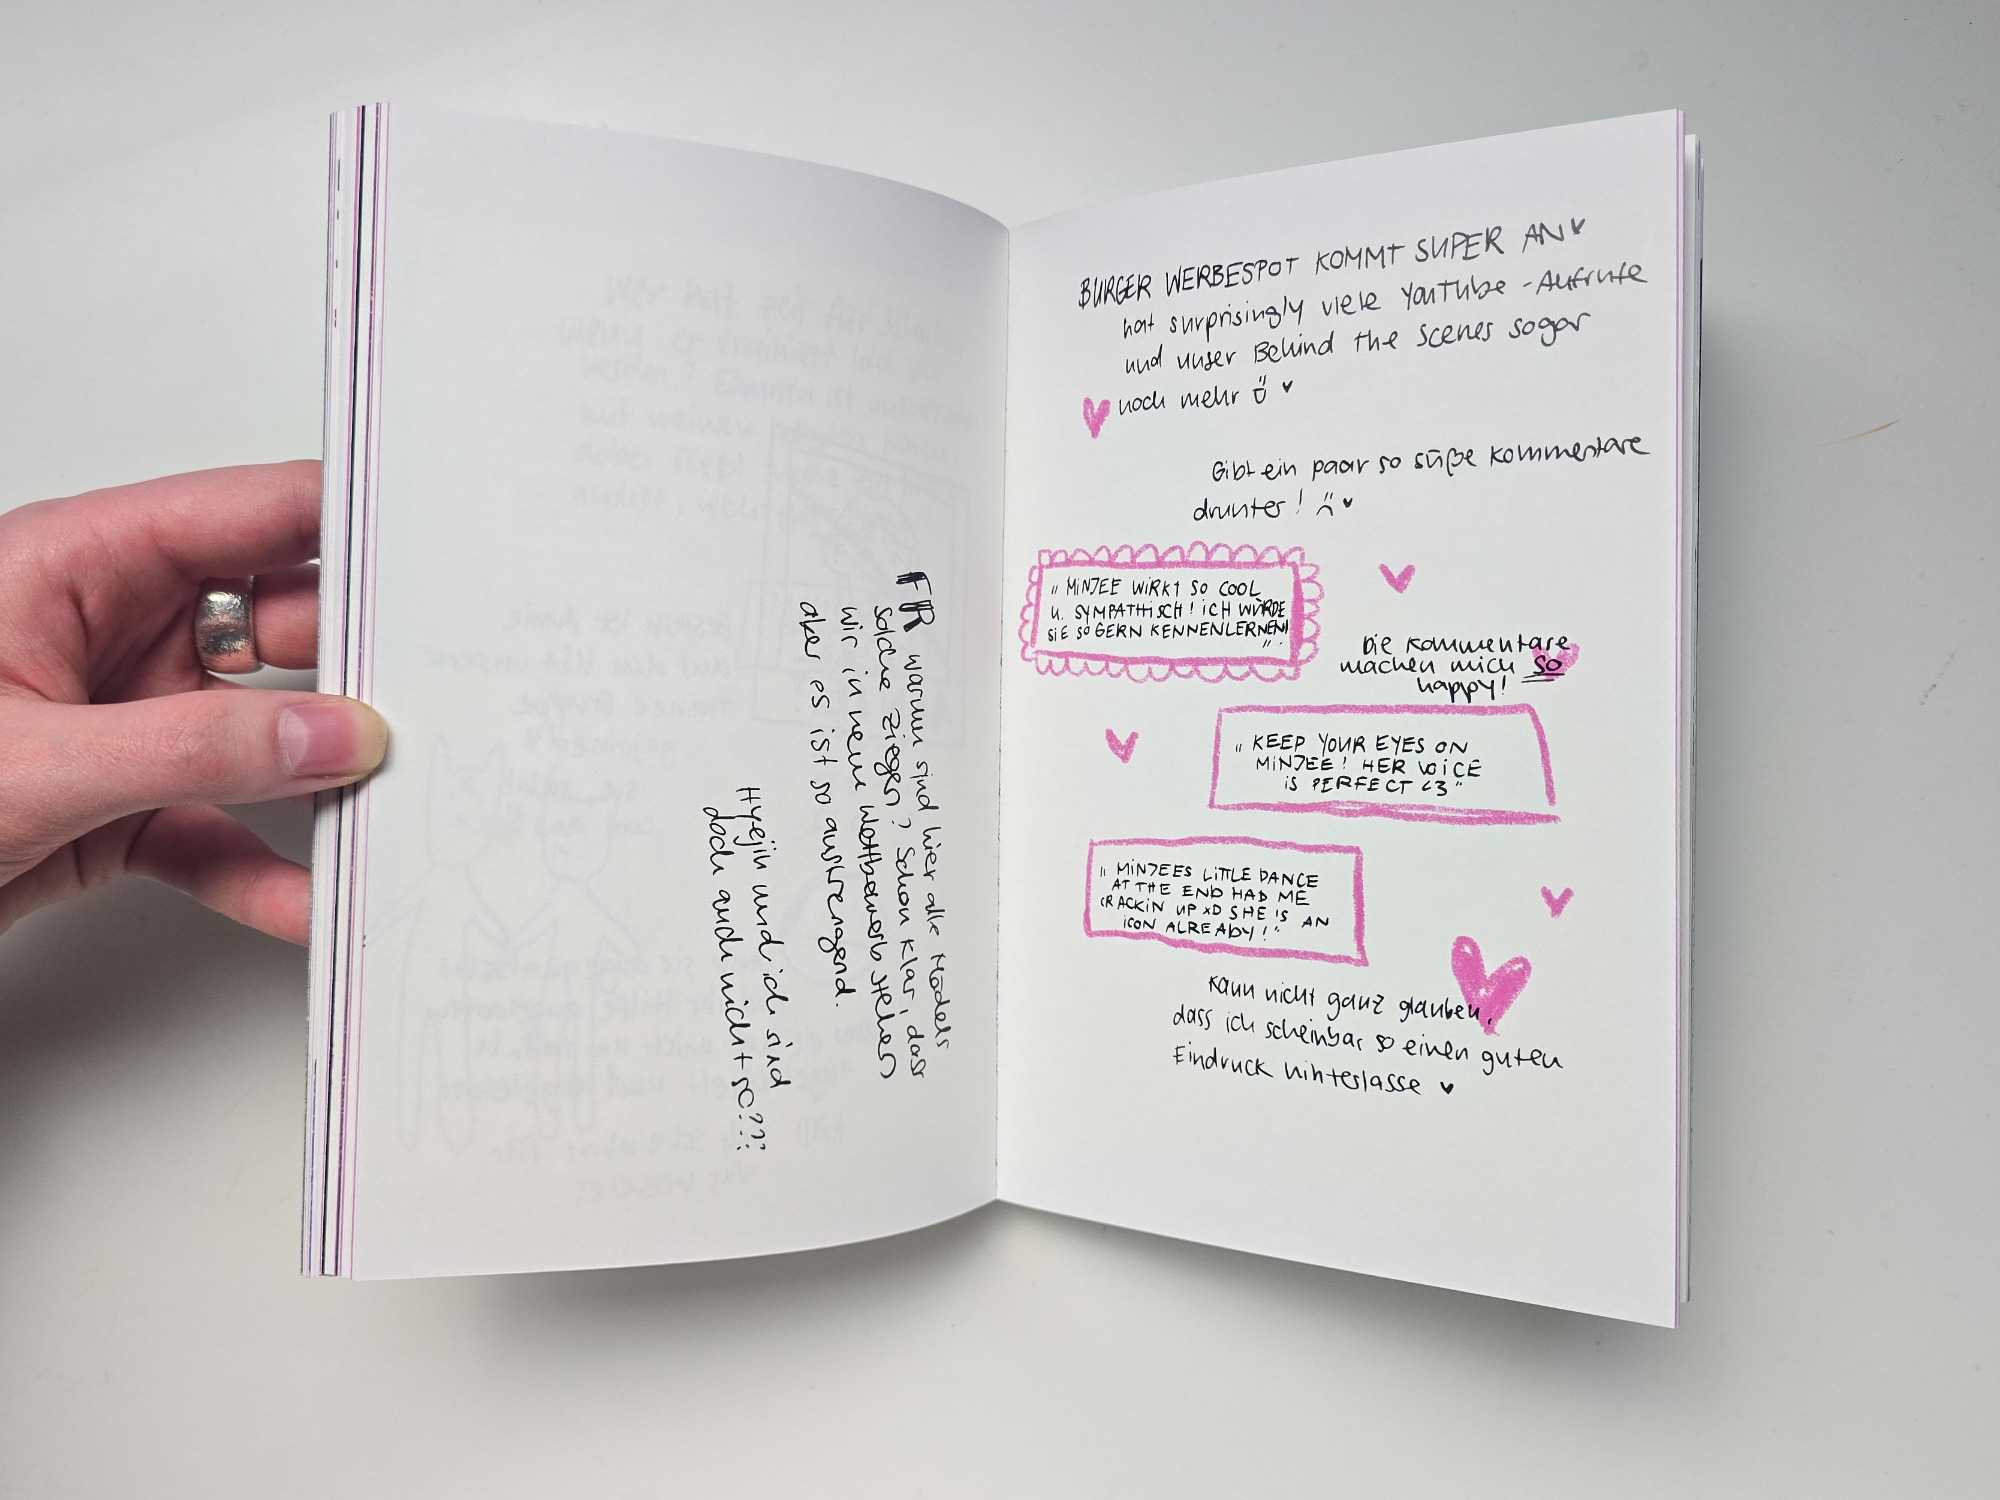 FR warum sind hier alle Mädels
solche Ziegen? Schon klar, dass
wir in nem Wettbewerb stehen
aber es ist so anstrengend.
Hyejin und ich sind
doch auch nicht so???
BURGER WERBESPOT KOMMT SUPER AN ♥
hat surprisingly viele YouTube-Aufrufe
und unser Behind the scenes sogar
noch mehr ♥
Gibt ein paar so süße Kommentare
drunter! ♥
"MINJEE WIRKT SO COOL
U. SYMPATHISCH! ICH WÜRDE
SIE SO GERN KENNENLERNEN!
"
Die Kommentare
machen mich so
happy!
"KEEP YOUR EYES ON
MINJEE! HER VOICE
IS PERFECT <3"
"MINJEES LITTLE DANCE
AT THE END HAD ME
CRACKIN UP XD SHE IS AN
ICON ALREADY!"
Kann nicht ganz glauben,
dass ich scheinbar so einen guten
Eindruck hinterlasse ♥